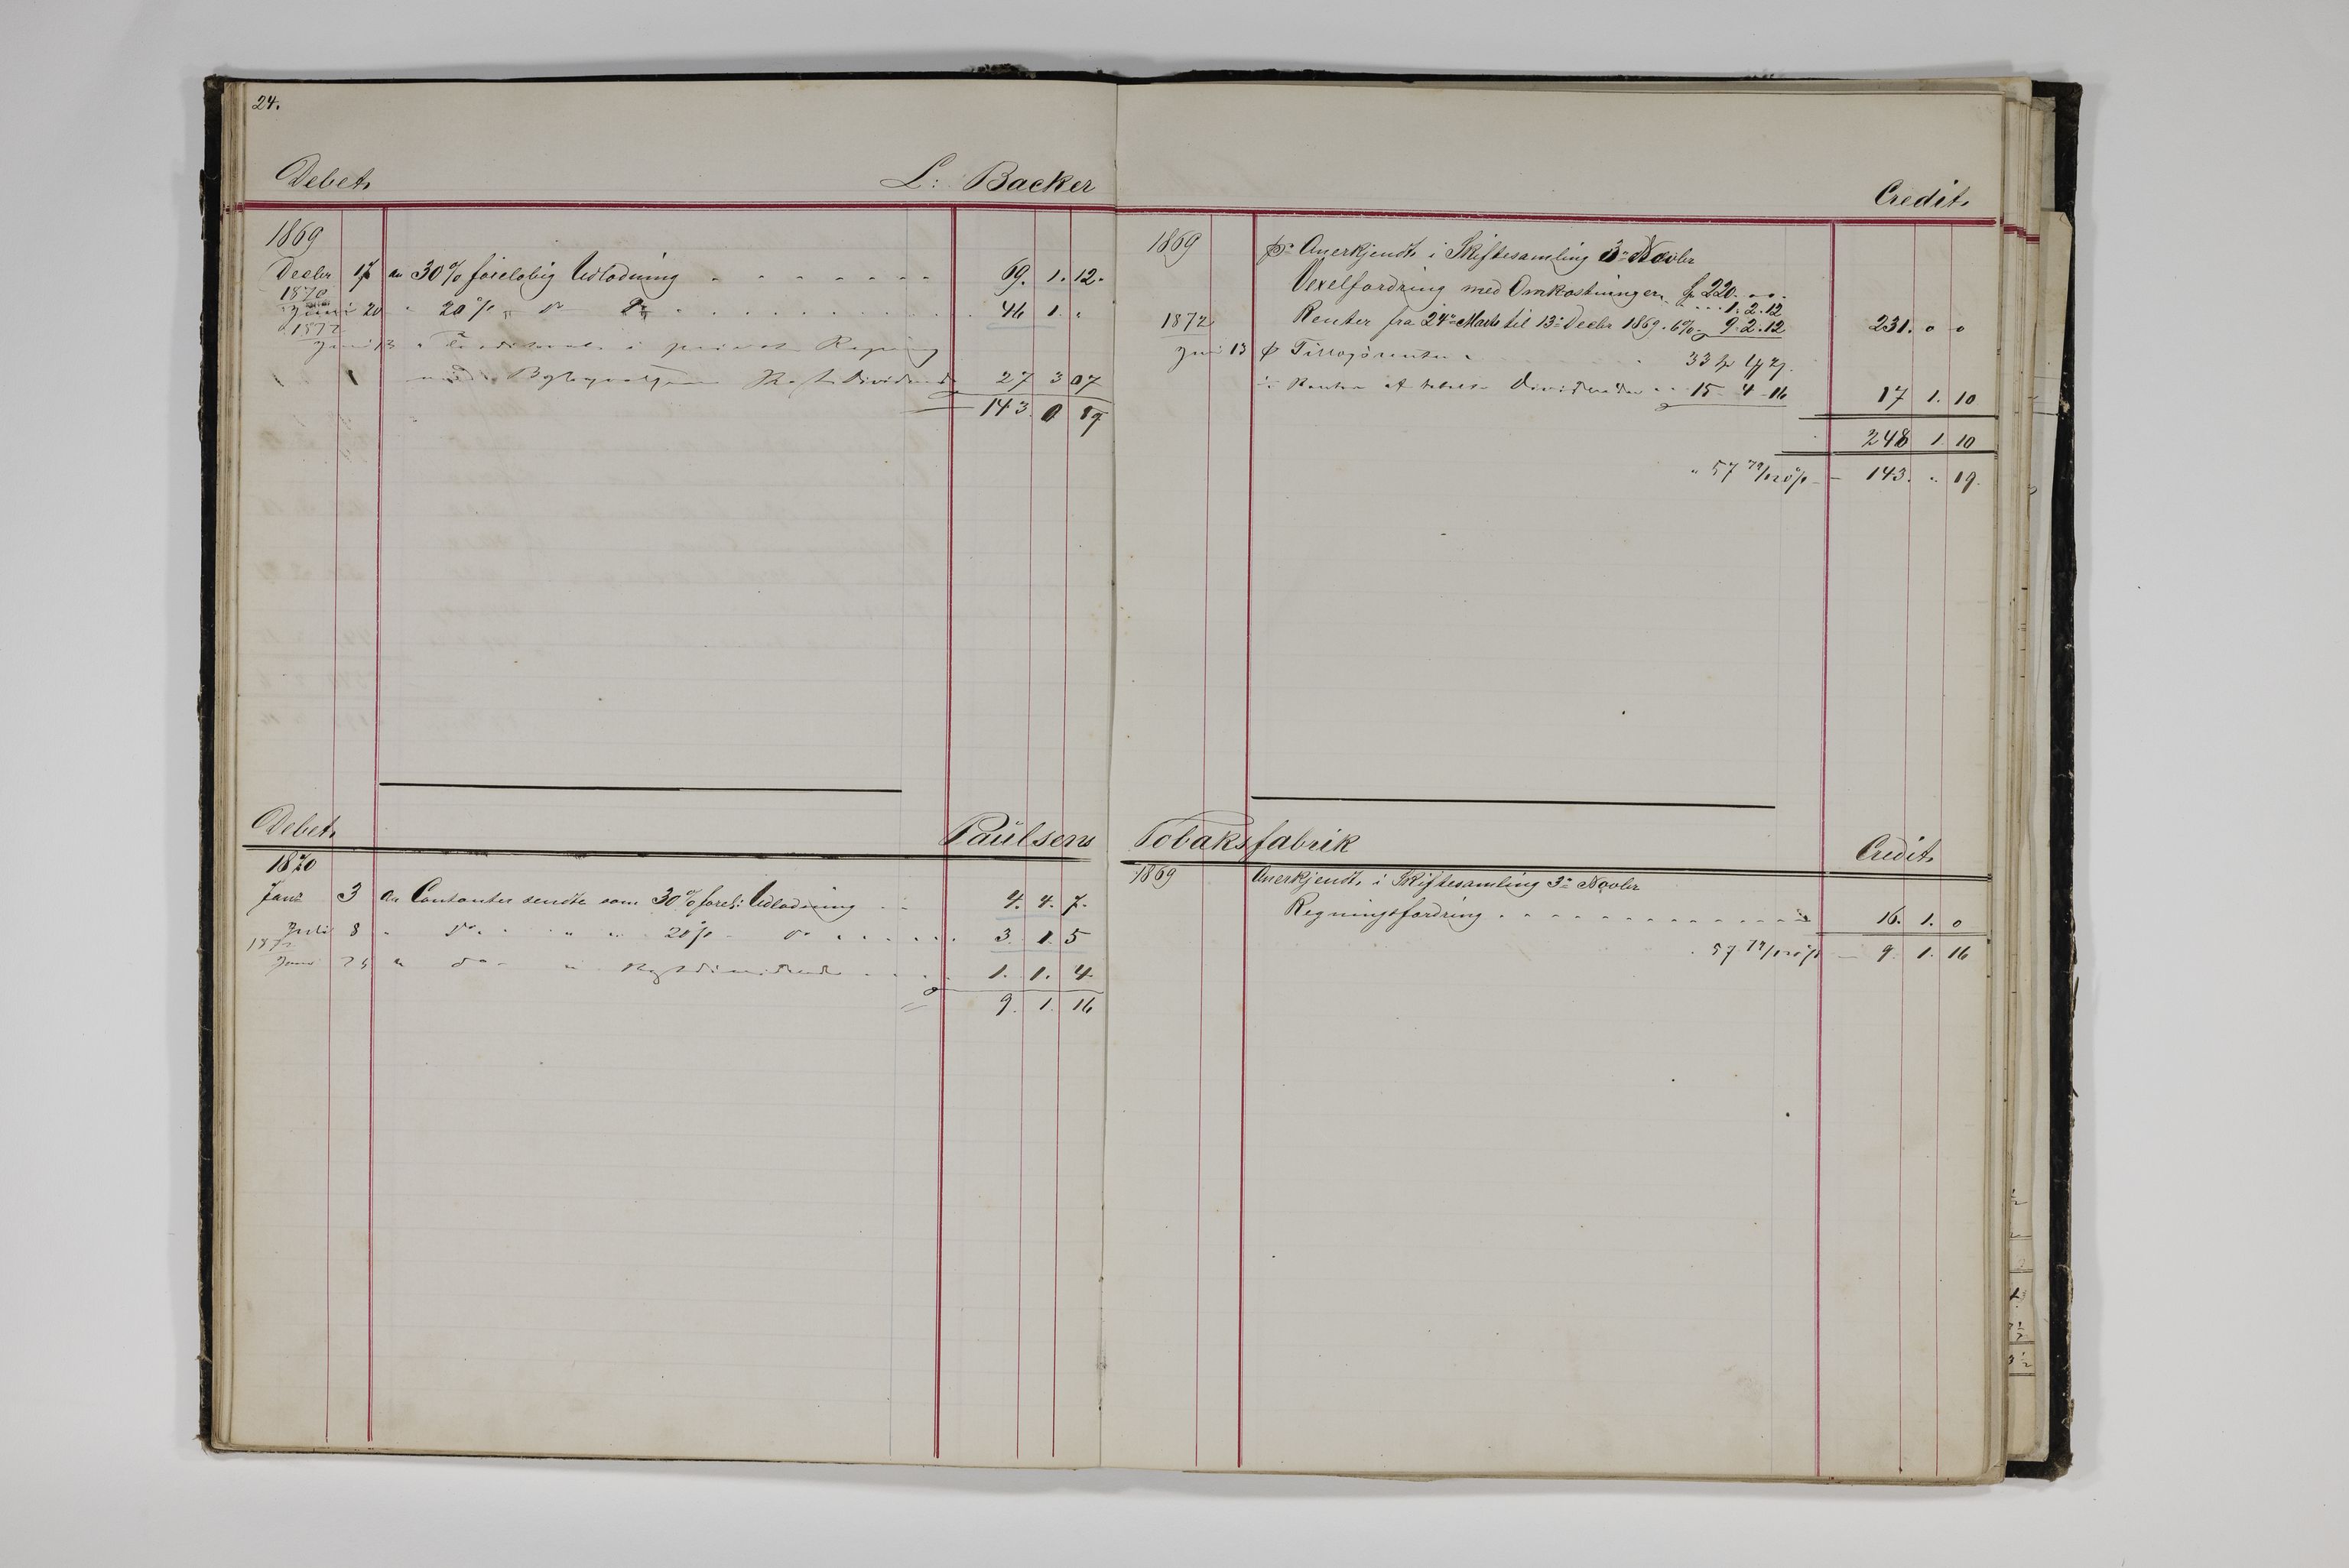 24.
Debet. L: Backer Credit.
1869
Decbr 17 an 30% foieløbig Udlodning 69. 1. 12.
1870
Juni 20 " 20% " do 46 1. "
1872
Juni 13 " i privat Regning
med Restdividende 27 3 07
143 0 19
1869 pr Anerkjendt i Skiftesamling 3die Novbr
Vexelfordring med Omkostninger Sp 220. " "
1. 2. 12
Renter fra 24de Marts til 13de Decbr 1869. 6% 9. 2. 12 231. 0 0
1872
Juni 13 33
Renter af Dividender 15 4 16 17 1. 10
248 1 10
" 57 79/120% 143. " 19.
Debet. Paülsens Tobaksfabrik Credit.
1870
Janr 3 an Contanter sendte som 30% forel: Udlodning 4. 4. 7.
Juli 8 " do " " 20% do 3. 1. 5
1872
Juni " do " Restdividende 1. 1. 4
9. 1. 16
1869 Anerkjendt i Skiftesamling 3die Novbr
Regningsfordring 16. 1. 0
57 79/120% 9. 1. 16